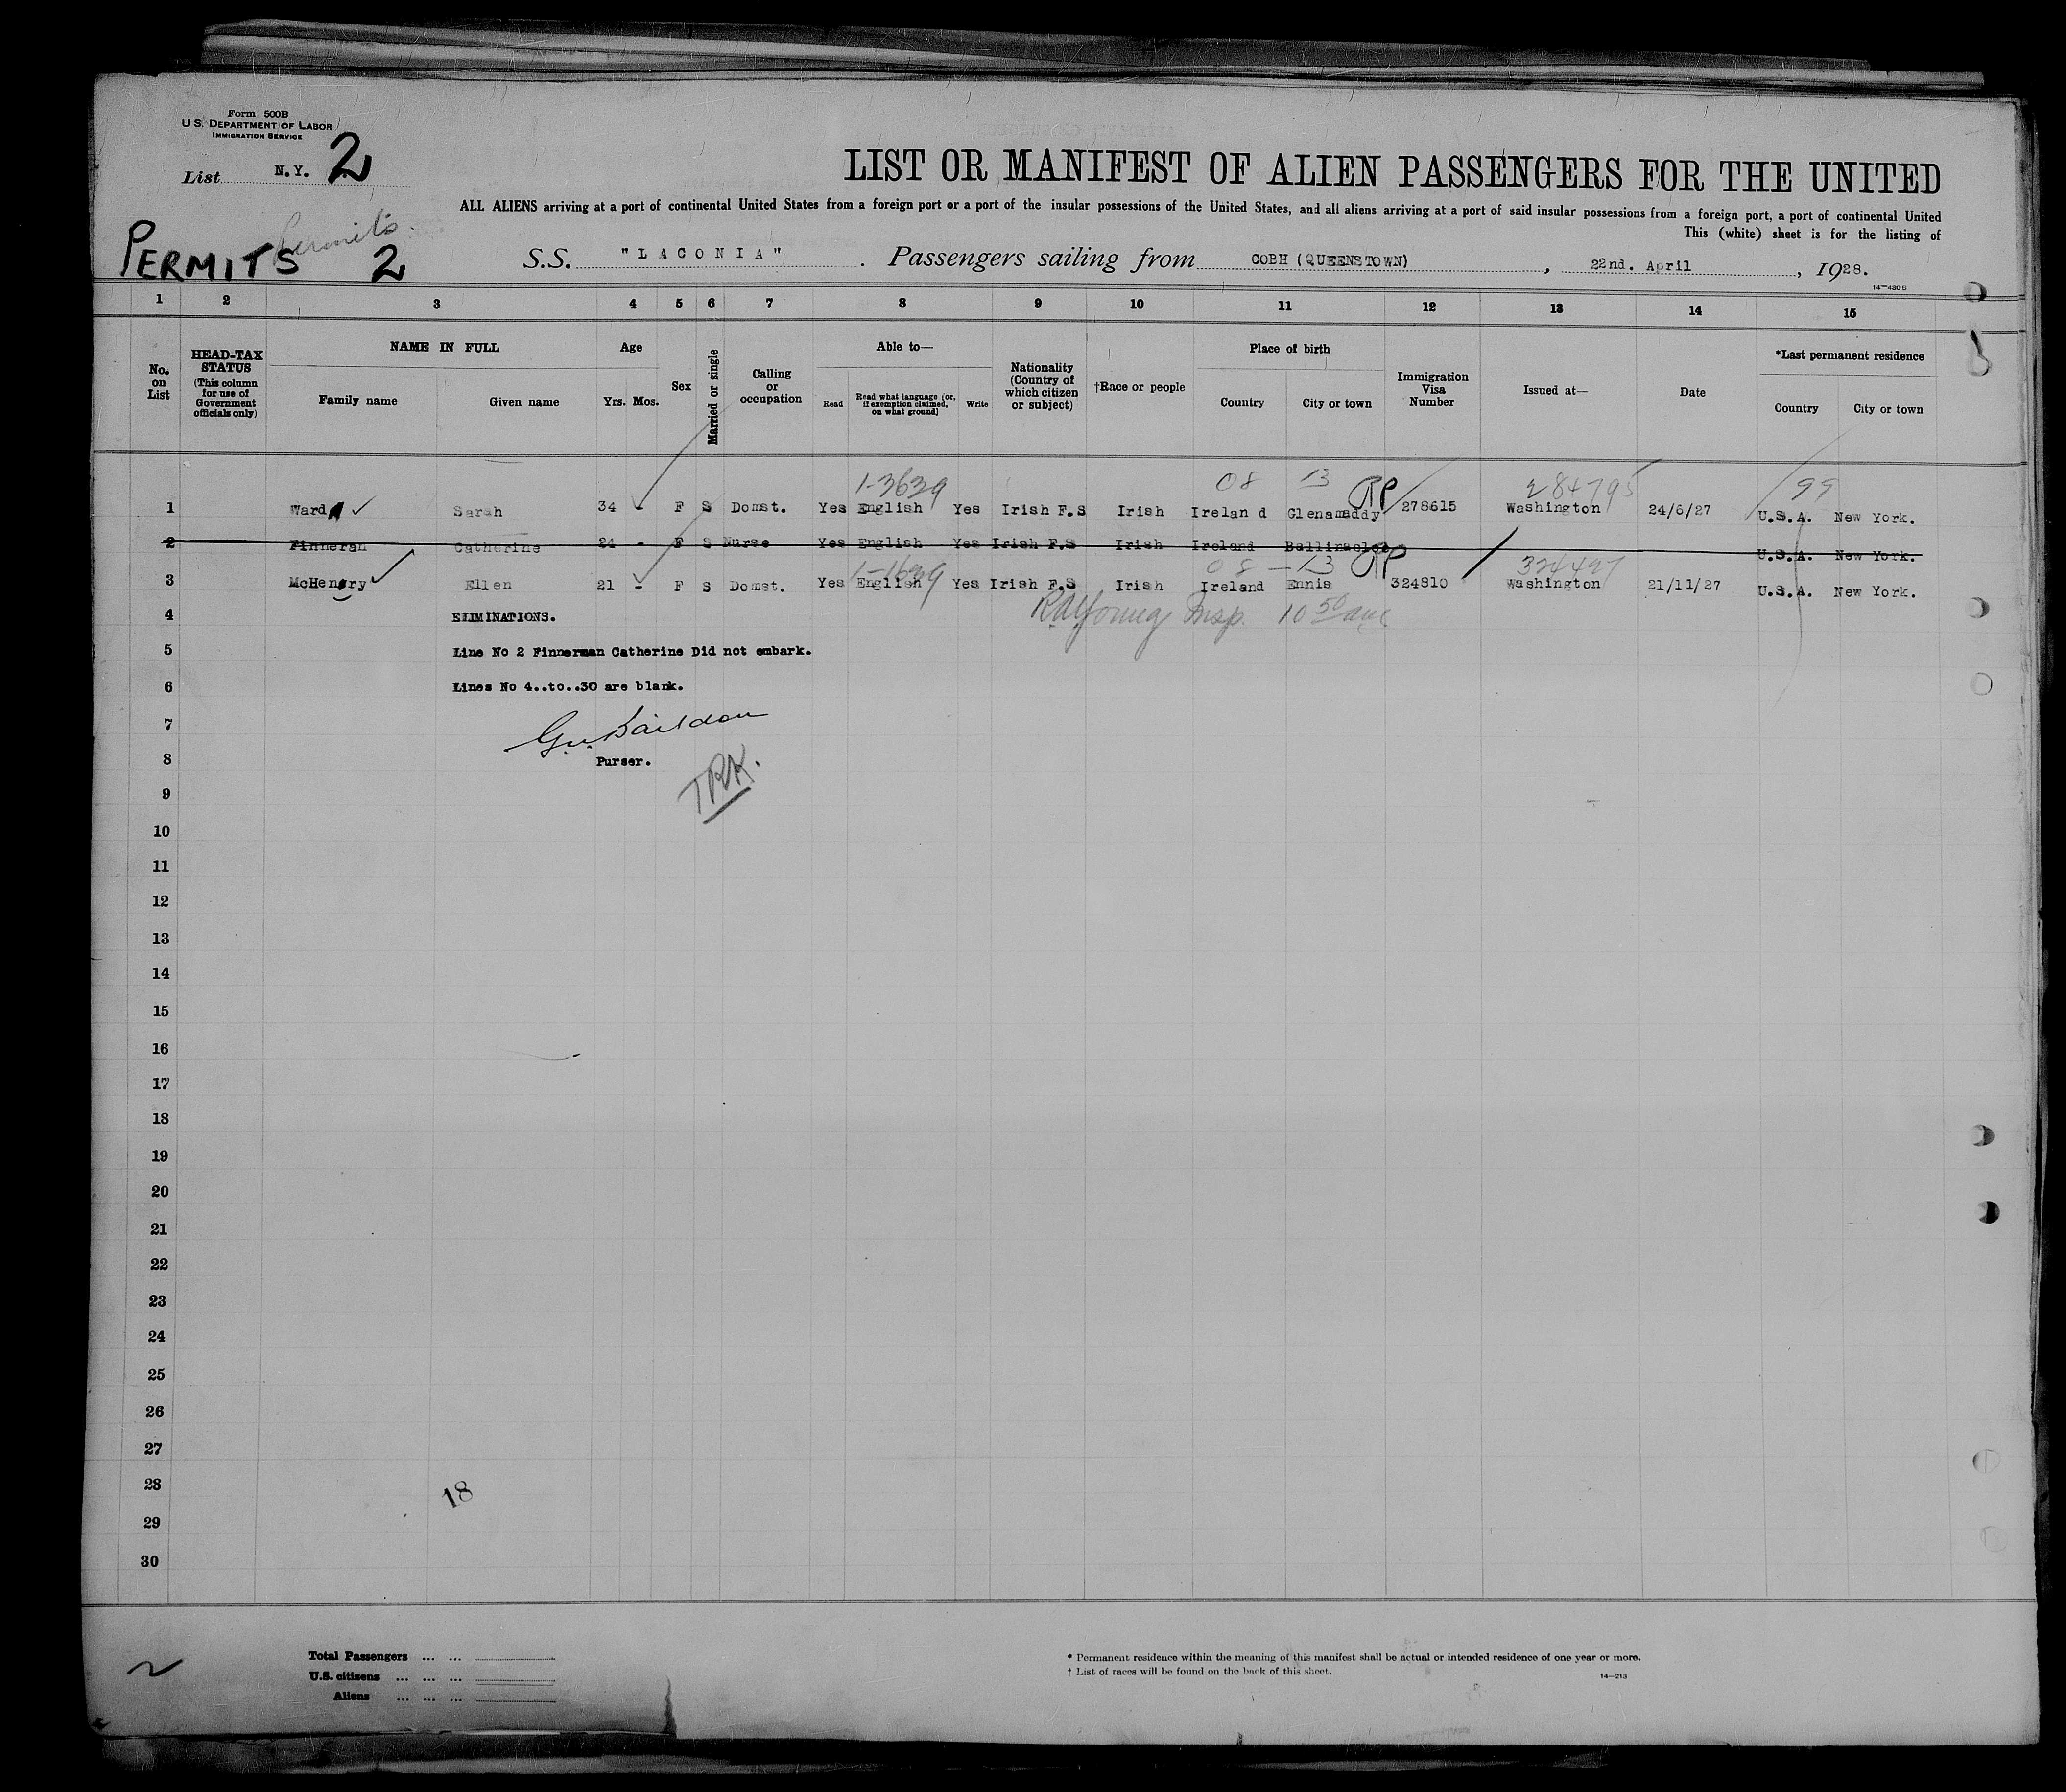 Form 500B
U.S. DEPARTMENT OF LABOR
IMMIGRATION SERVICE
List N.Y. 2
LIST OR MANIFEST OF ALIEN PASSENGERS FOR THE UNITED
ALL ALIENS arriving at a port of continental United States from a foreign port or a port of the insular possessions of the United States, and all aliens arriving at a port of said insular possessions from a foreign port, a port of continental United
This (white) sheet is for the listing of
Permits.
PERMITS 2
S.S. "LACONIA". Passengers sailing from COBH (QUEENSTOWN), 22nd. April, 1928.
14—430B
1 2 3 4 5 6 7 8 9 10 11 12 13 14 15
No. on List
HEAD-TAX STATUS (This column for use of Government officials only)
NAME IN FULL
Family name Given name
Age
Yrs. Mos.
Sex
Married or single
Calling or occupation
Able to—
Read Read what language (or, if exemption claimed, on what ground) Write
Nationality (Country of which citizen or subject)
†Race or people
Place of birth
Country City or town
Immigration Visa Number
Issued at—
Date
*Last permanent residence
Country City or town
1-3639 08 13 RP 284795 99
1 Ward Sarah 34 F S Domst. Yes English Yes Irish F.S Irish Ireland Glenamaddy 278615 Washington 24/6/27 U.S.A. New York.
2 Finneran Catherine 24 - F S Nurse Yes English Yes Irish F.S Irish Ireland Ballinasloe U.S.A. New York.
08 - 13 RP 324497
3 McHenry Ellen 21 - F S Domst. Yes English Yes Irish F.S Irish Ireland Ennis 324810 Washington 21/11/27 U.S.A. New York.
4 ELIMINATIONS. Insp. 10 50
5 Line No 2 Finnerman Catherine Did not embark.
6 Lines No 4..to..30 are blank.
7
8 Purser.
TRK.
9
10
11
12
13
14
15
16
17
18
19
20
21
22
23
24
25
26
27
28 18
29
30
Total Passengers ... ...
U.S. citizens ... ... ...
Aliens ... ... ...
* Permanent residence within the meaning of this manifest shall be actual or intended residence of one year or more.
† List of races will be found on the back of this sheet.
14—213